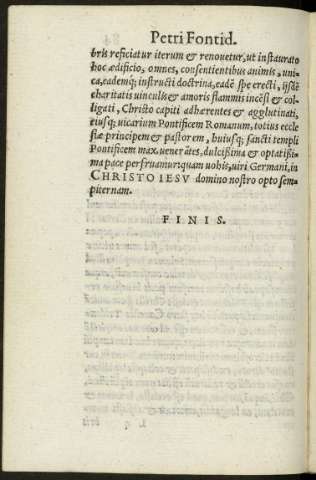 Petri Fontid.
bris reficiatur iterum & renouetur, ut instaurato
hoc ædificio, omnes, consentientibus animis, uni-
ca, eademq; instructi doctrina, eadē spe erecti, ijsdē
charitatis uinculis & amoris flammis incēsi & col-
ligati, Christo capiti adhærentes & agglutinati,
eiusq; uicarium Pontificem Romanum, totius eccle
siæ principem & pastorem, huiusq; sancti templi
Pontificem max. uenerātes, dulcissima & optatissi-
ma pace perfruamur: quam uobis, uiri Germani, in
CHRISTO IESV domino nostro opto sem-
piternam.
FINIS.